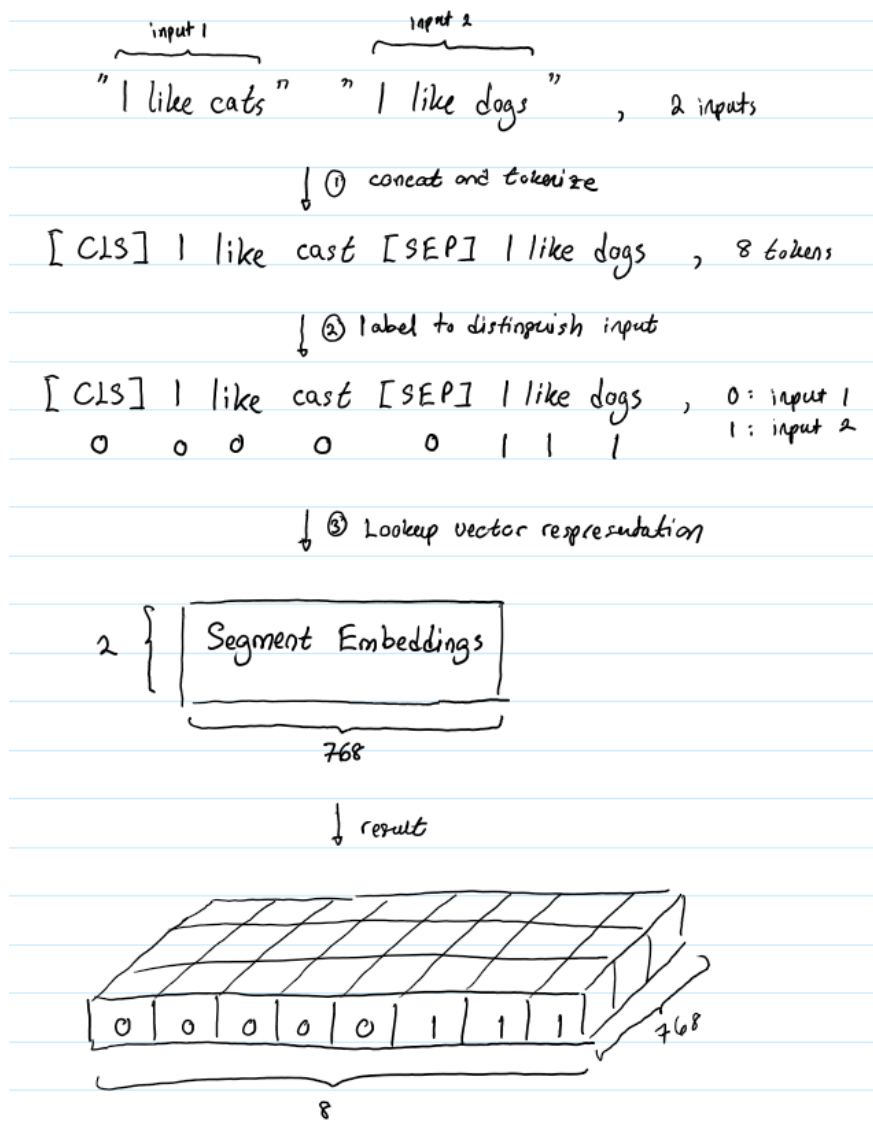 input 1 input 2
"I like cats" "I like dogs", 2 inputs
① concat and tokenize
[CLS] I like cast [SEP] I like dogs, 8 tokens
② label to distinguish input
[CLS] I like cast [SEP] I like dogs, 0: input 1
1: input 2
0 0 0 0 0 1 1 1
③ Lookup vector respresentation
2 Segment Embeddings
768
result
0 0 0 0 0 1 1 1
768
8